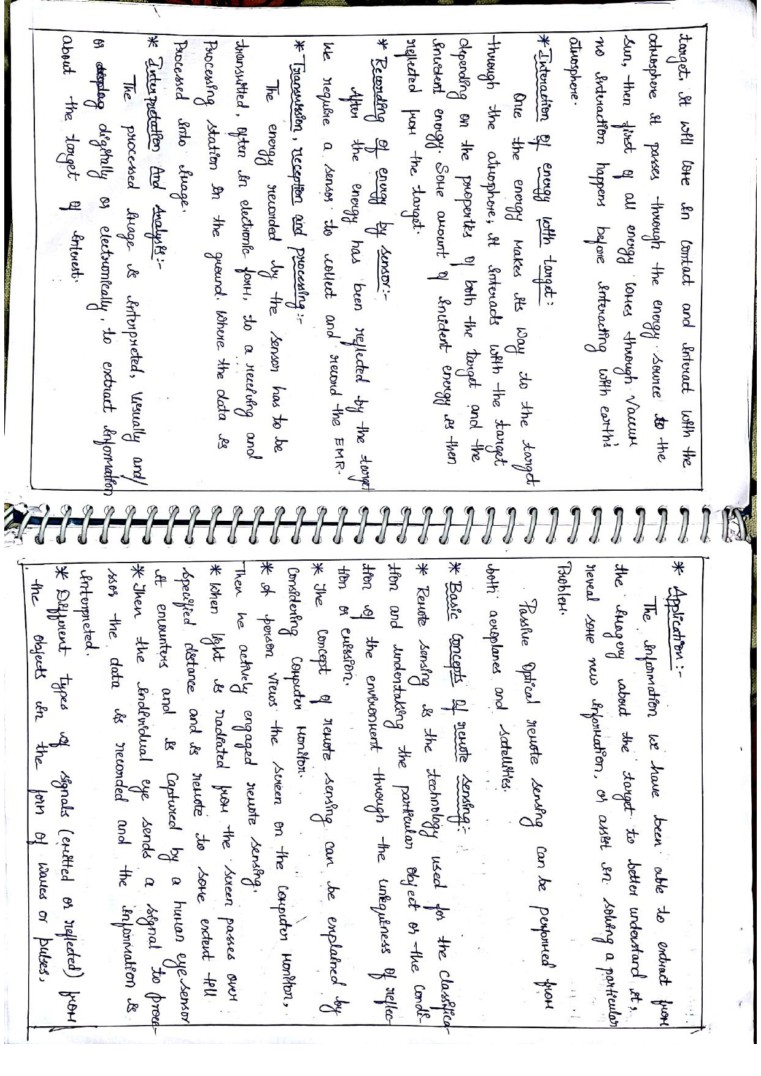 target. it will come in contact and interact with the
atmosphere it passes through the energy source to the
sun, then first of all energy comes through vaccum
no interaction happens before interacting with earth's
atmosphere.
* Interaction of energy with target:
Once the energy makes its way to the target
through the atmosphere, it interacts with the target
depending on the properties of both the target and the
incident energy. Some amount of incident energy is then
reflected from the target.
* Recording of energy by sensor:-
After the energy has been reflected by the target
we require a sensor to collect and record the EMR.
* Transmission, reception and processing:-
The energy recorded by the sensor has to be
transmitted, often in electronic form, to a receiving and
Processing station in the ground. Where the data is
Processed into image.
* Interpretation And Analysis:-
The processed image is interpreted, visually and/
or digitally or electronically, to extract information
about the target of interest.
* Application:-
The information we have been able to extract from
the imagery about the target to better understand it,
reveal some new information, or assist in solving a particular
Problem.
Passive Optical remote sensing can be performed from
both aeroplanes and satellites.
* Basic Concepts of remote sensing:-
* Remote sensing is the technology used for the classifica-
tion and undertaking the particular object or the condi-
tion of the environment through the uniquiness of reflec-
tion or emission.
* The concept of remote sensing can be explained by
Considering Computer monitor.
* A person views the screen on the computer monitor,
Then he actively engaged remote sensing.
* When light is radiated from the screen passes over
specified distance and is remote to some extent till
it encounters and is captured by a human eye sensor
* Then the individual eye sends a signal to proce-
ssor the data is recorded and the information is
interpreted.
* Different types of signals (emitted or reflected) from
the objects in the form of waves or pulses,